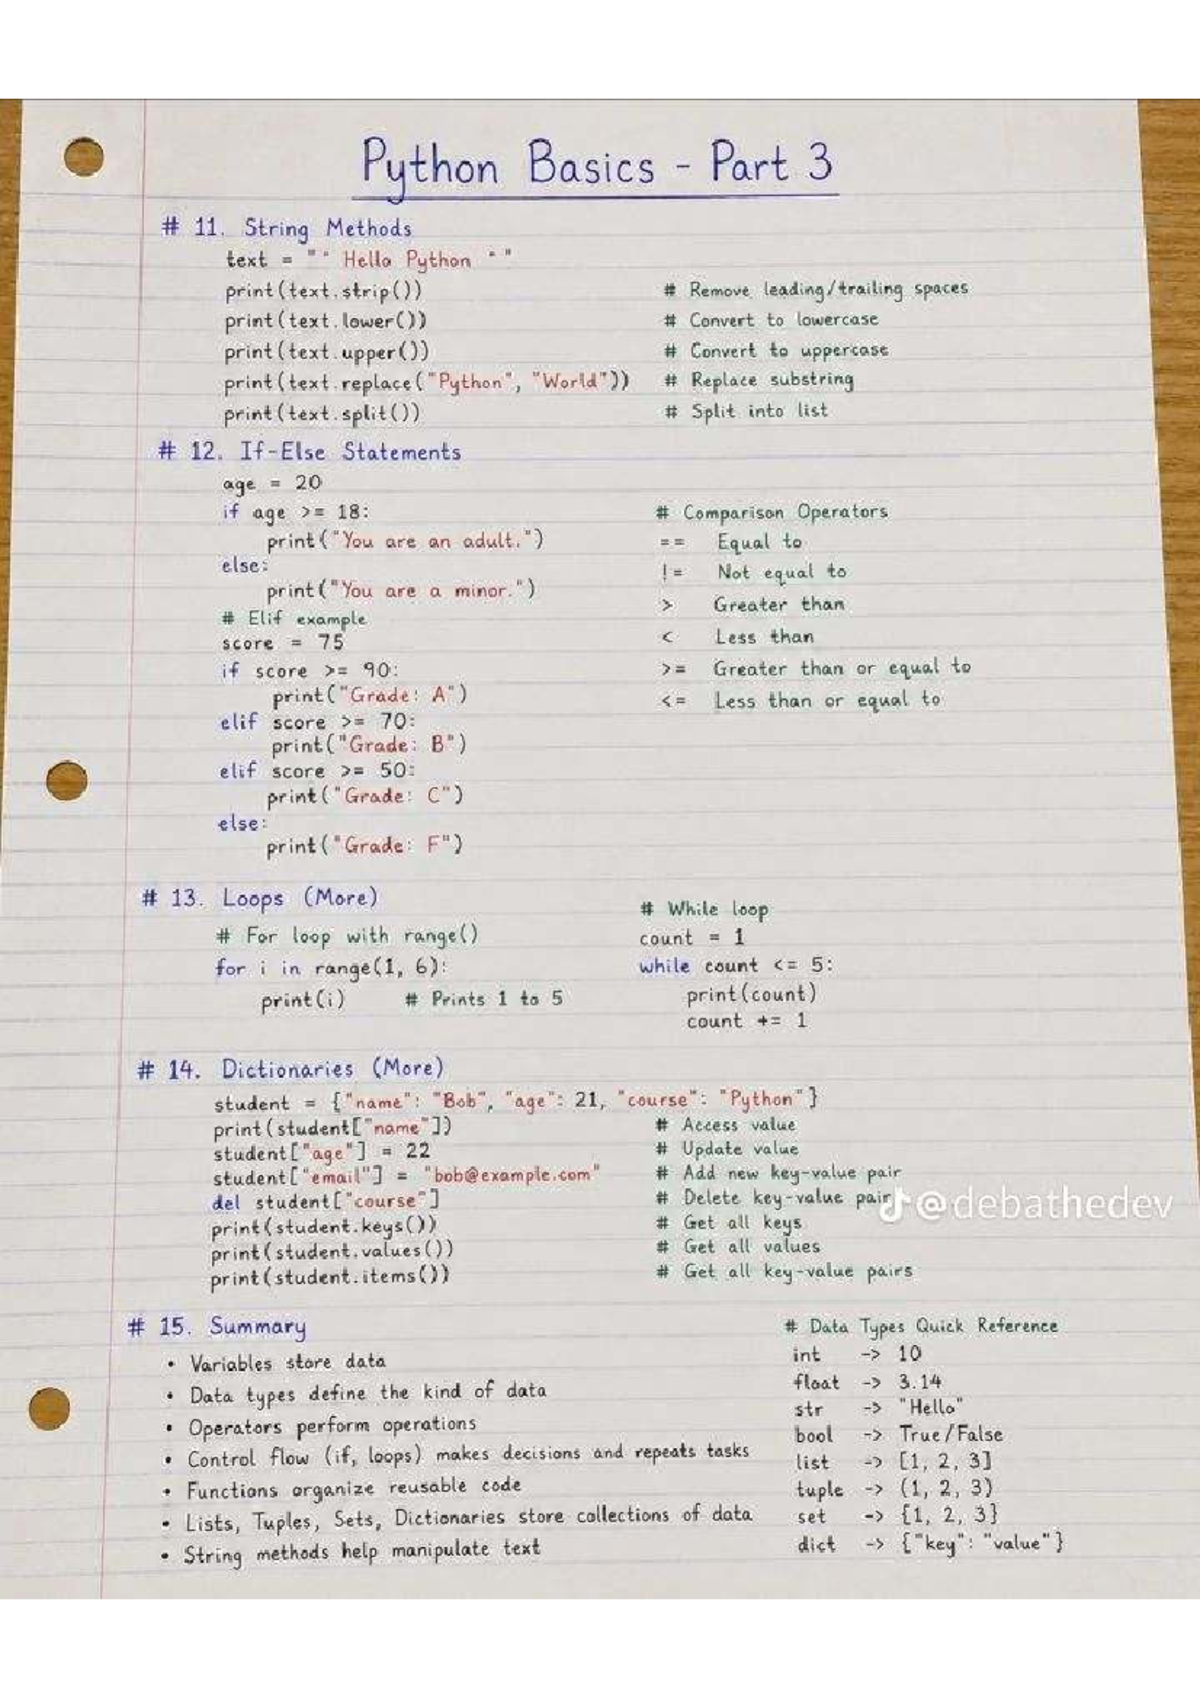 Python Basics - Part 3
# 11. String Methods
text = "" Hello Python ""
print(text.strip()) # Remove leading/trailing spaces
print(text.lower()) # Convert to lowercase
print(text.upper()) # Convert to uppercase
print(text.replace("Python", "World")) # Replace substring
print(text.split()) # Split into list
# 12. If-Else Statements
age = 20
if age >= 18:
print("You are an adult.")
else:
print("You are a minor.")
# Elif example
score = 75
if score >= 90:
print("Grade: A")
elif score >= 70:
print("Grade: B")
elif score >= 50:
print("Grade: C")
else:
print("Grade: F")
# Comparison Operators
== Equal to
!= Not equal to
> Greater than
< Less than
>= Greater than or equal to
<= Less than or equal to
# 13. Loops (More)
# For loop with range()
for i in range(1, 6):
print(i) # Prints 1 to 5
# While loop
count = 1
while count <= 5:
print(count)
count += 1
# 14. Dictionaries (More)
student = {"name": "Bob", "age": 21, "course": "Python"}
print(student["name"]) # Access value
student["age"] = 22 # Update value
student["email"] = "bob@example.com" # Add new key-value pair
del student["course"] # Delete key-value pair
@debathedev
print(student.keys()) # Get all keys
print(student.values()) # Get all values
print(student.items()) # Get all key-value pairs
# 15. Summary
• Variables store data
• Data types define the kind of data
• Operators perform operations
• Control flow (if, loops) makes decisions and repeats tasks
• Functions organize reusable code
• Lists, Tuples, Sets, Dictionaries store collections of data
• String methods help manipulate text
# Data Types Quick Reference
int -> 10
float -> 3.14
str -> "Hello"
bool -> True/False
list -> [1, 2, 3]
tuple -> (1, 2, 3)
set -> {1, 2, 3}
dict -> {"key": "value"}